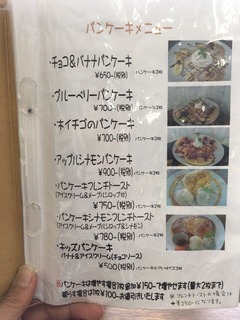 パンケーキメニュー
・チョコ&バナナパンケーキ
¥650-(税別) パンケーキ3枚
・ブルーベリーパンケーキ
¥700-(税別) パンケーキ3枚
・木イチゴのパンケーキ
¥700-(税別) パンケーキ3枚
・アップルシナモンパンケーキ
¥900-(税別) パンケーキ3枚
・パンケーキフレンチトースト
(アイスクリーム&メープルシロップ付)
¥750-(税別) パンケーキ2枚
・パンケーキシナモンフレンチトースト
(アイスクリーム&メープルシロップ&シナモン)
¥780-(税別) パンケーキ2枚
・キッズパンケーキ
バナナ&アイスクリーム(チョコソース)
¥500(税別)
※パンケーキは増やす場合1枚¥150-で増やせます(最大2枚まで)
減らす場合は1枚¥100-お値引きいたします
※フレンチトーストの場合は
+¥250-になります。